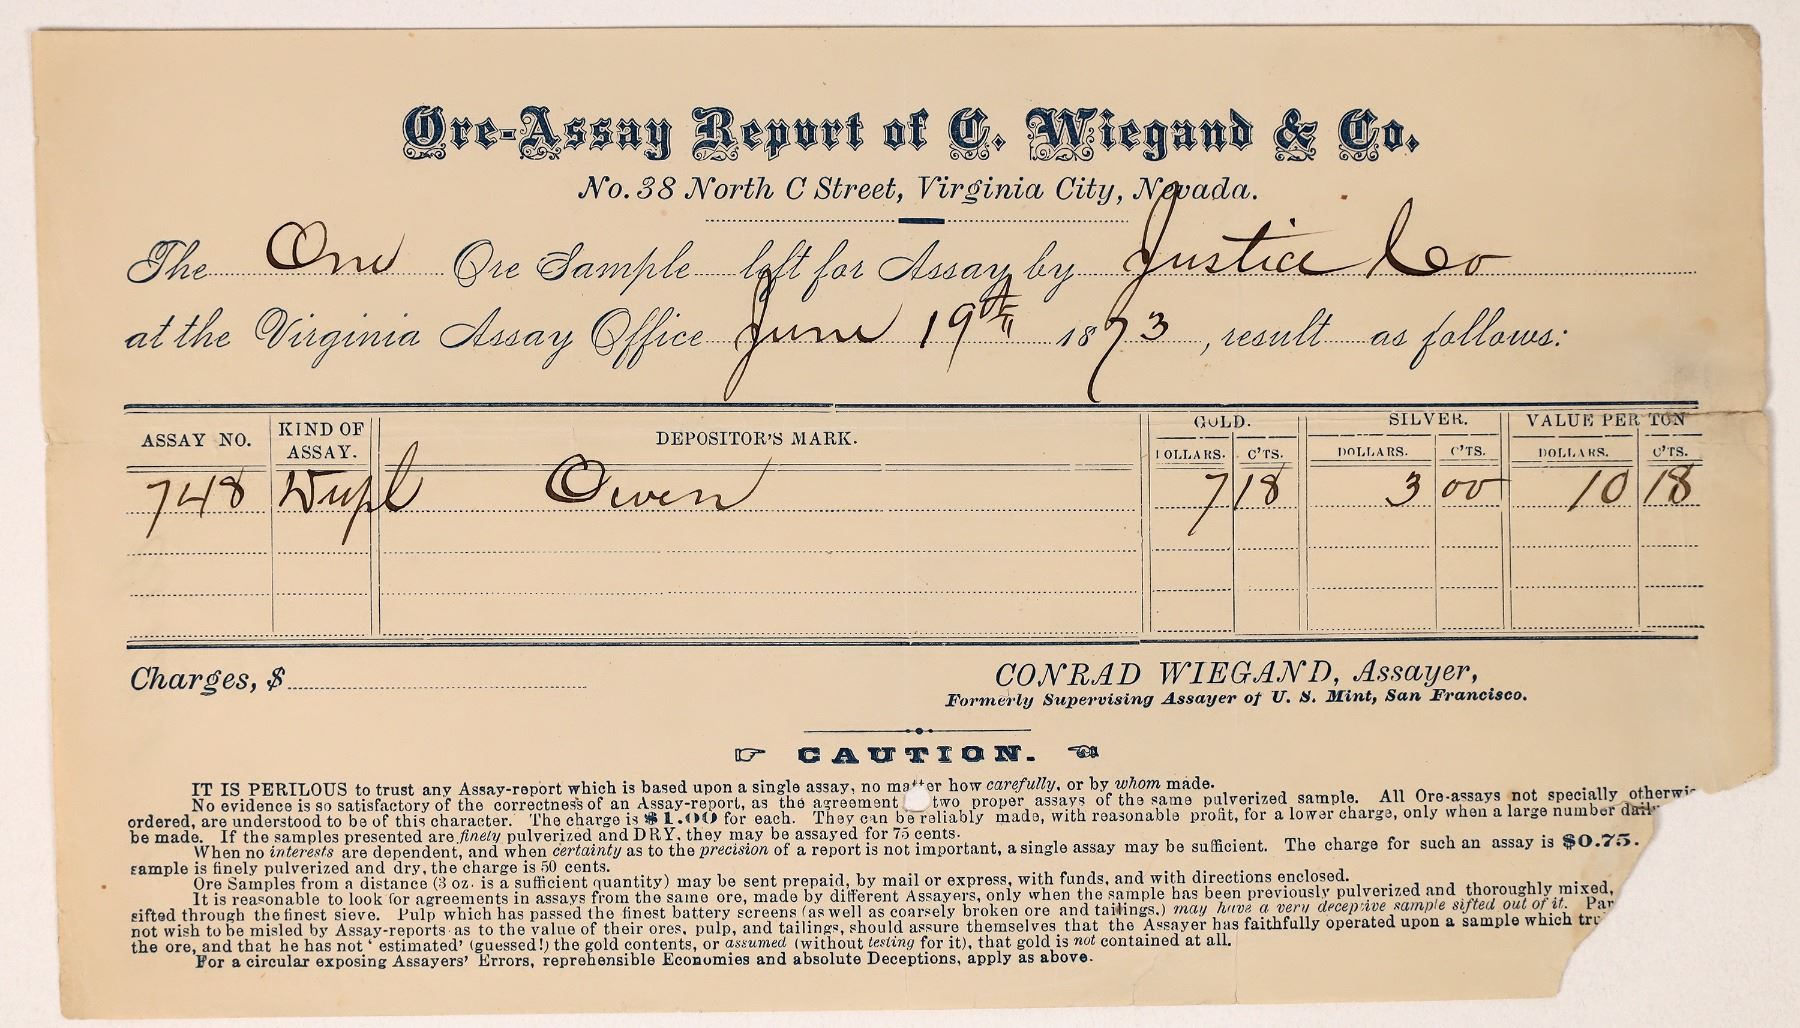 Ore-Assay Report of C. Wiegand & Co.
No. 38 North C Street, Virginia City, Nevada.
The One Ore Sample left for Assay by Justice Co
at the Virginia Assay Office June 19th 1873, result as follows:
ASSAY NO. KIND OF ASSAY. DEPOSITOR'S MARK. GOLD. SILVER. VALUE PER TON
DOLLARS. C'TS. DOLLARS. C'TS. DOLLARS. C'TS.
748 Dupl Owen 7 18 3 00 10 18
Charges, $
CONRAD WIEGAND, Assayer,
Formerly Supervising Assayer of U. S. Mint, San Francisco.
CAUTION.
IT IS PERILOUS to trust any Assay-report which is based upon a single assay, no matter how carefully, or by whom made.
No evidence is so satisfactory of the correctness of an Assay-report, as the agreement two proper assays of the same pulverized sample. All Ore-assays not specially otherwi
ordered, are understood to be of this character. The charge is $1.00 for each. They can be reliably made, with reasonable profit, for a lower charge, only when a large number daily
be made. If the samples presented are finely pulverized and DRY, they may be assayed for 75 cents.
When no interests are dependent, and when certainty as to the precision of a report is not important, a single assay may be sufficient. The charge for such an assay is $0.75.
sample is finely pulverized and dry, the charge is 50 cents.
Ore Samples from a distance (3 oz. is a sufficient quantity) may be sent prepaid, by mail or express, with funds, and with directions enclosed.
It is reasonable to look for agreements in assays from the same ore, made by different Assayers, only when the sample has been previously pulverized and thoroughly mixed,
sifted through the finest sieve. Pulp which has passed the finest battery screens (as well as coarsely broken ore and tailings,) may have a very deceptive sample sifted out of it. Par
not wish to be misled by Assay-reports as to the value of their ores, pulp, and tailings, should assure themselves that the Assayer has faithfully operated upon a sample which tru
the ore, and that he has not 'estimated' (guessed!) the gold contents, or assumed (without testing for it), that gold is not contained at all.
For a circular exposing Assayers' Errors, reprehensible Economies and absolute Deceptions, apply as above.